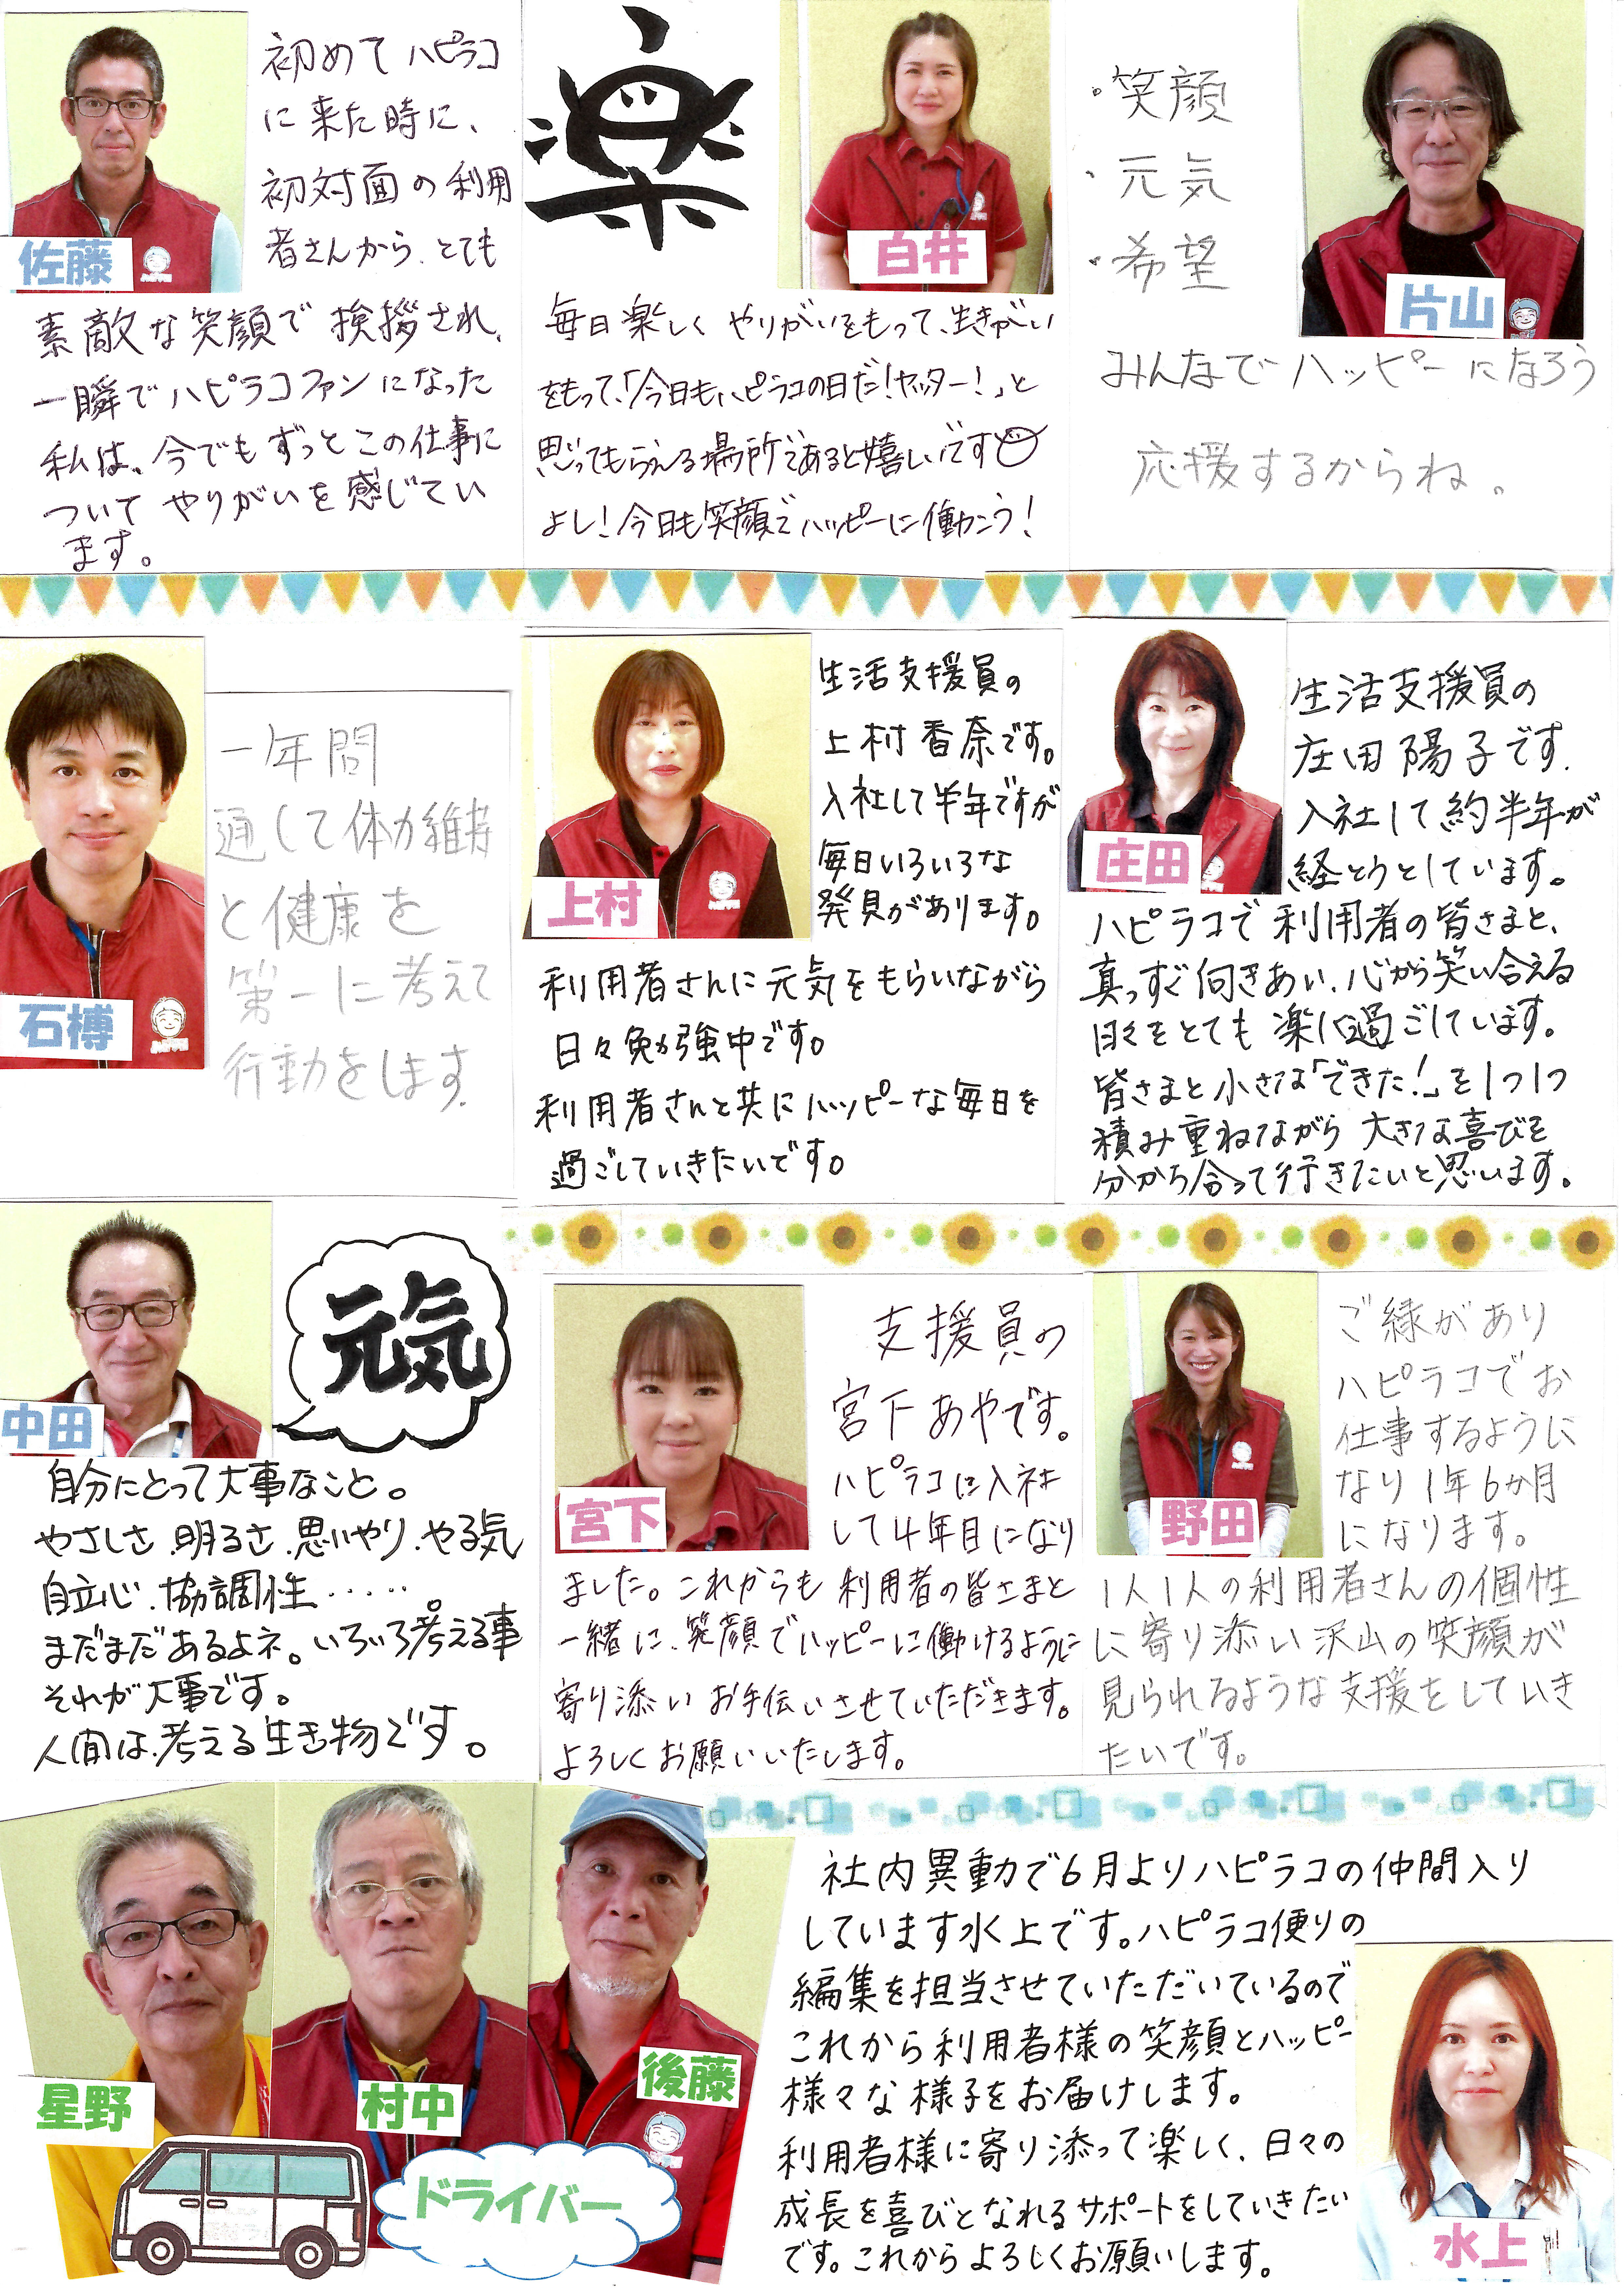 初めて ハピラコ
に来た時に、
初対面の利用
者さんから、とても
佐藤
素敵な笑顔で 挨拶され、
一瞬でハピラコファンになった
私は、今でもずっとこの仕事に
ついて やりがいを感じてい
ます。
楽
白井
毎日楽しく やりがいをもって、生きがい
をもって、「今日も、ハピラコの日だ！ヤッター！」と
思ってもらえる場所であると嬉しいです
よし！今日も笑顔でハッピーに働こう！
・笑顔
・元気
・希望
片山
みんなでハッピーになろう
応援するからね。
石榑
一年間
通して体力維持
と健康を
第一に考えて
行動をします。
上村
生活支援員の
上村香奈です。
入社して半年ですが
毎日いろいろな
発見があります。
利用者さんに元気をもらいながら
日々勉強中です。
利用者さんと共にハッピーな毎日を
過ごしていきたいです。
庄田
生活支援員の
庄田陽子です。
入社して約半年が
経とうとしています。
ハピラコで利用者の皆さまと、
真っすぐ向きあい、心から笑い合える
日々をとても楽しく過ごしています。
皆さまと小さな「できた！」を1つ1つ
積み重ねながら 大きな喜びを
分かち合って行きたいと思います。
中田
元気
自分にとって大事なこと。
やさしさ、明るさ、思いやり、やる気
自立心、協調性‥‥‥
まだまだあるよネ。いろいろ考える事
それが大事です。
人間は、考える生き物です。
宮下
支援員の
宮下あやです。
ハピラコに入社
して4年目になり
ました。これからも利用者の皆さまと
一緒に、笑顔でハッピーに働けるように
寄り添い お手伝いさせていただきます。
よろしくお願いいたします。
野田
ご縁があり
ハピラコでお
仕事するように
なり1年6か月
になります。
1人1人の利用者さんの個性
に寄り添い沢山の笑顔が
見られるような支援をしていき
たいです。
星野
村中
後藤
ドライバー
社内異動で6月よりハピラコの仲間入り
しています水上です。ハピラコ便りの
編集を担当させていただいているので
これから利用者様の笑顔とハッピー
様々な様子をお届けします。
利用者様に寄り添って楽しく、日々の
成長を喜びとなれるサポートをしていきたい
です。これからよろしくお願いします。
水上